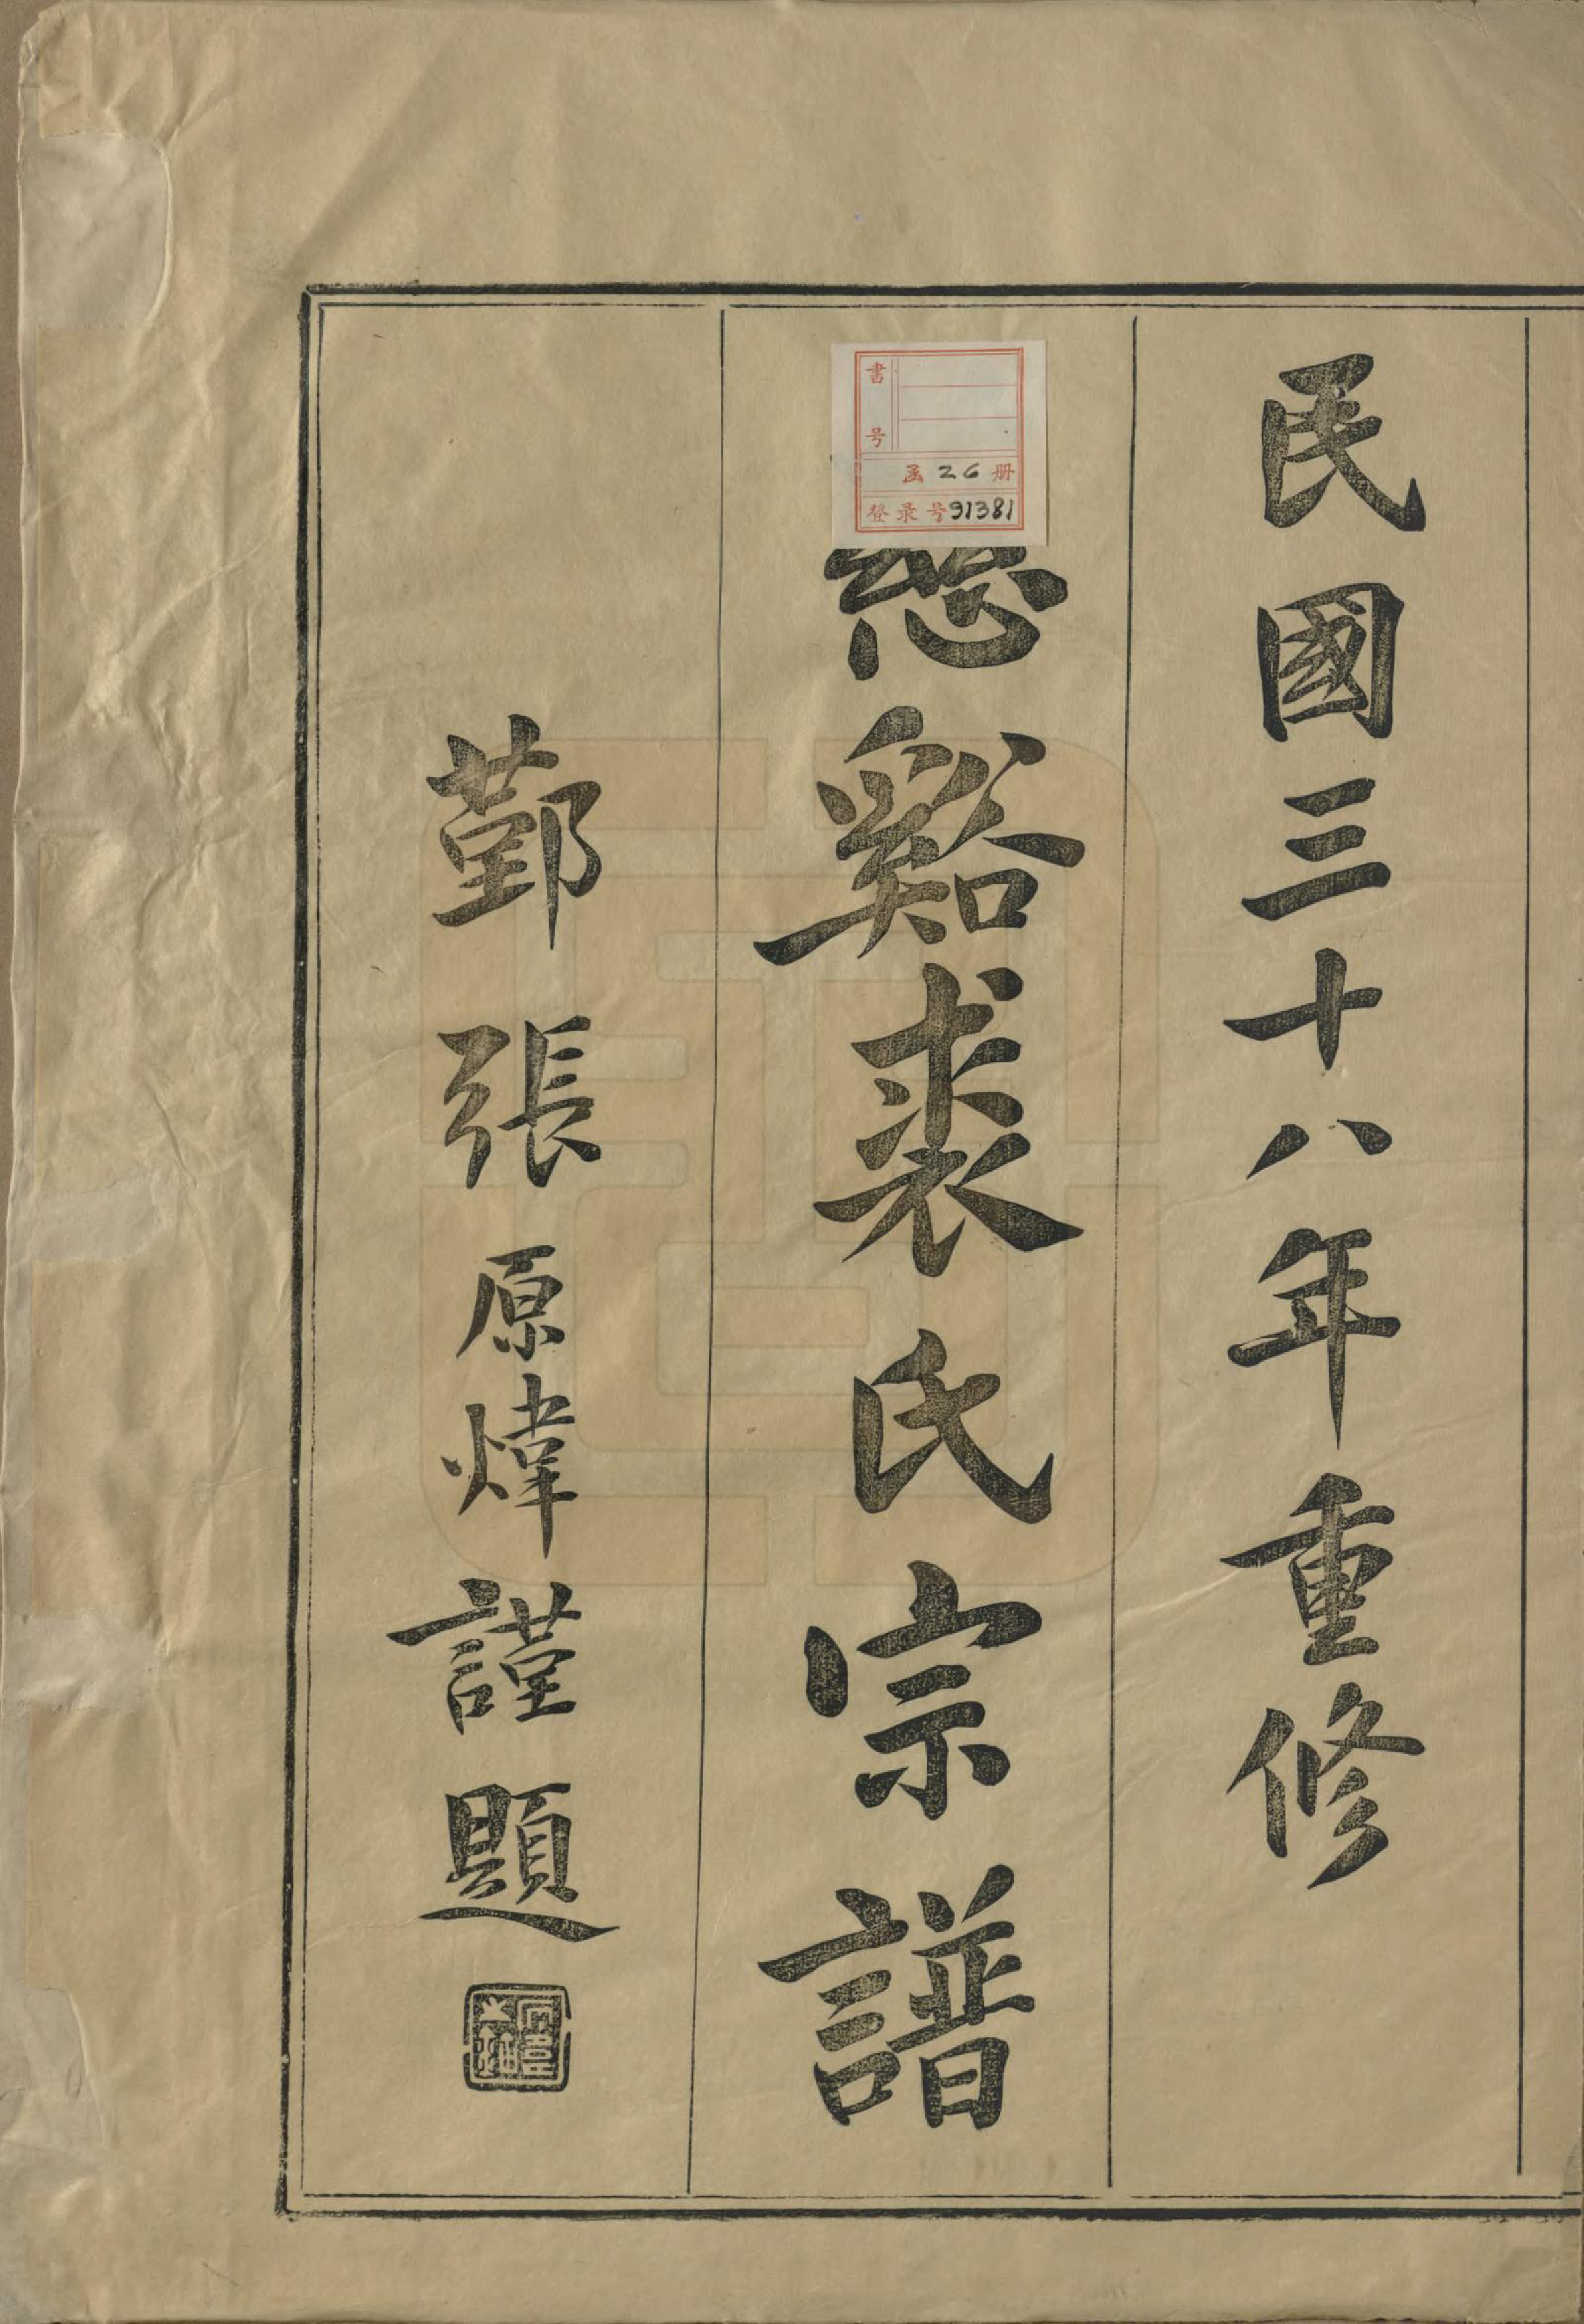 民國三十八年重修
慈谿裘氏宗譜
鄞張原煒謹題
書号
函 26 册
登录号 91381